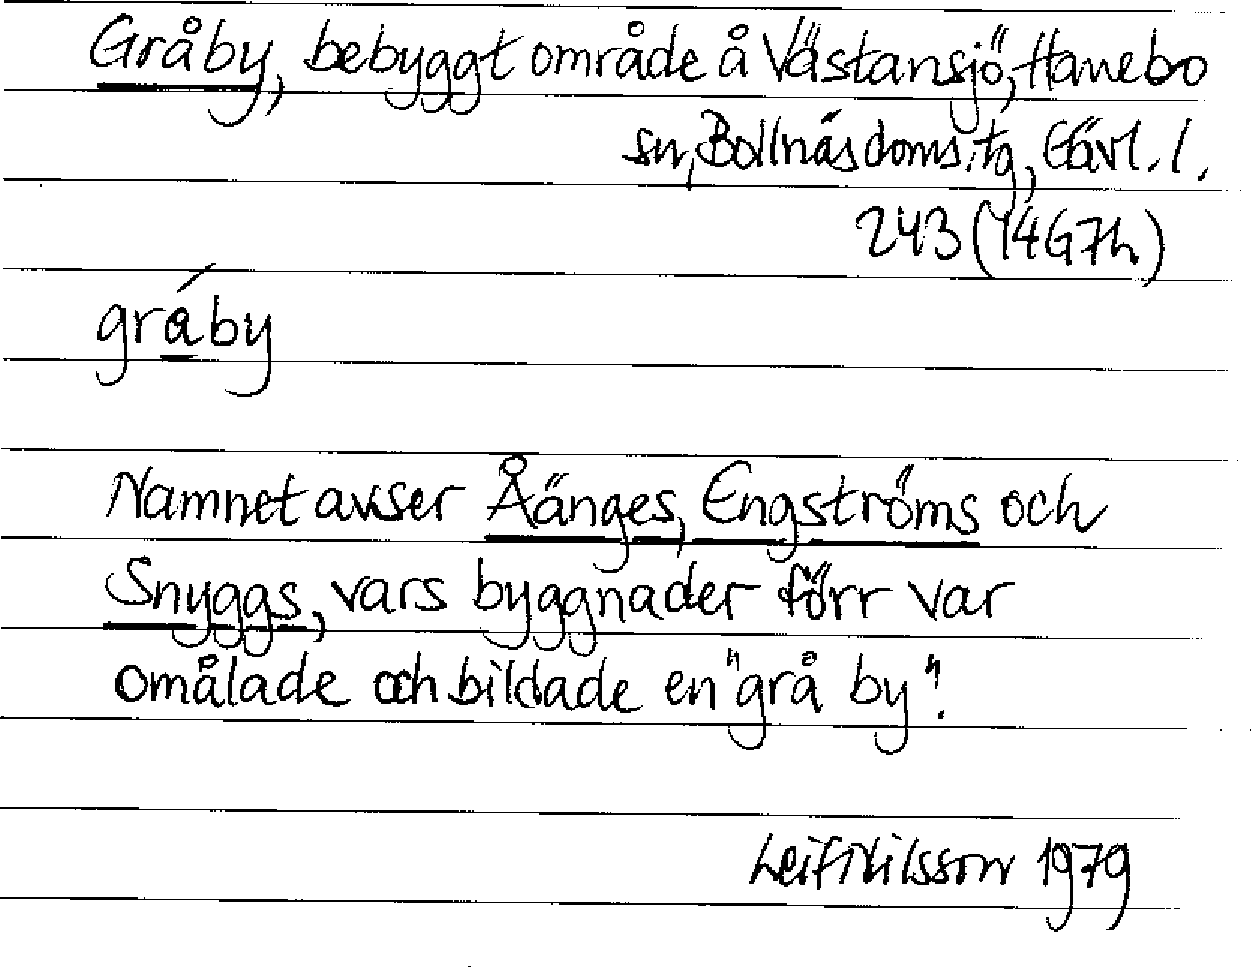 Gråby, bebyggt område å Västansjö, Hanebo
sn, Bollnäs doms.tg, Gävl. l.
243 (14G7h)
gráby
Namnet avser Åänges, Engströms och
Snyggs, vars byggnader förr var
omålade och bildade en "grå by".
Leif Nilsson 1979